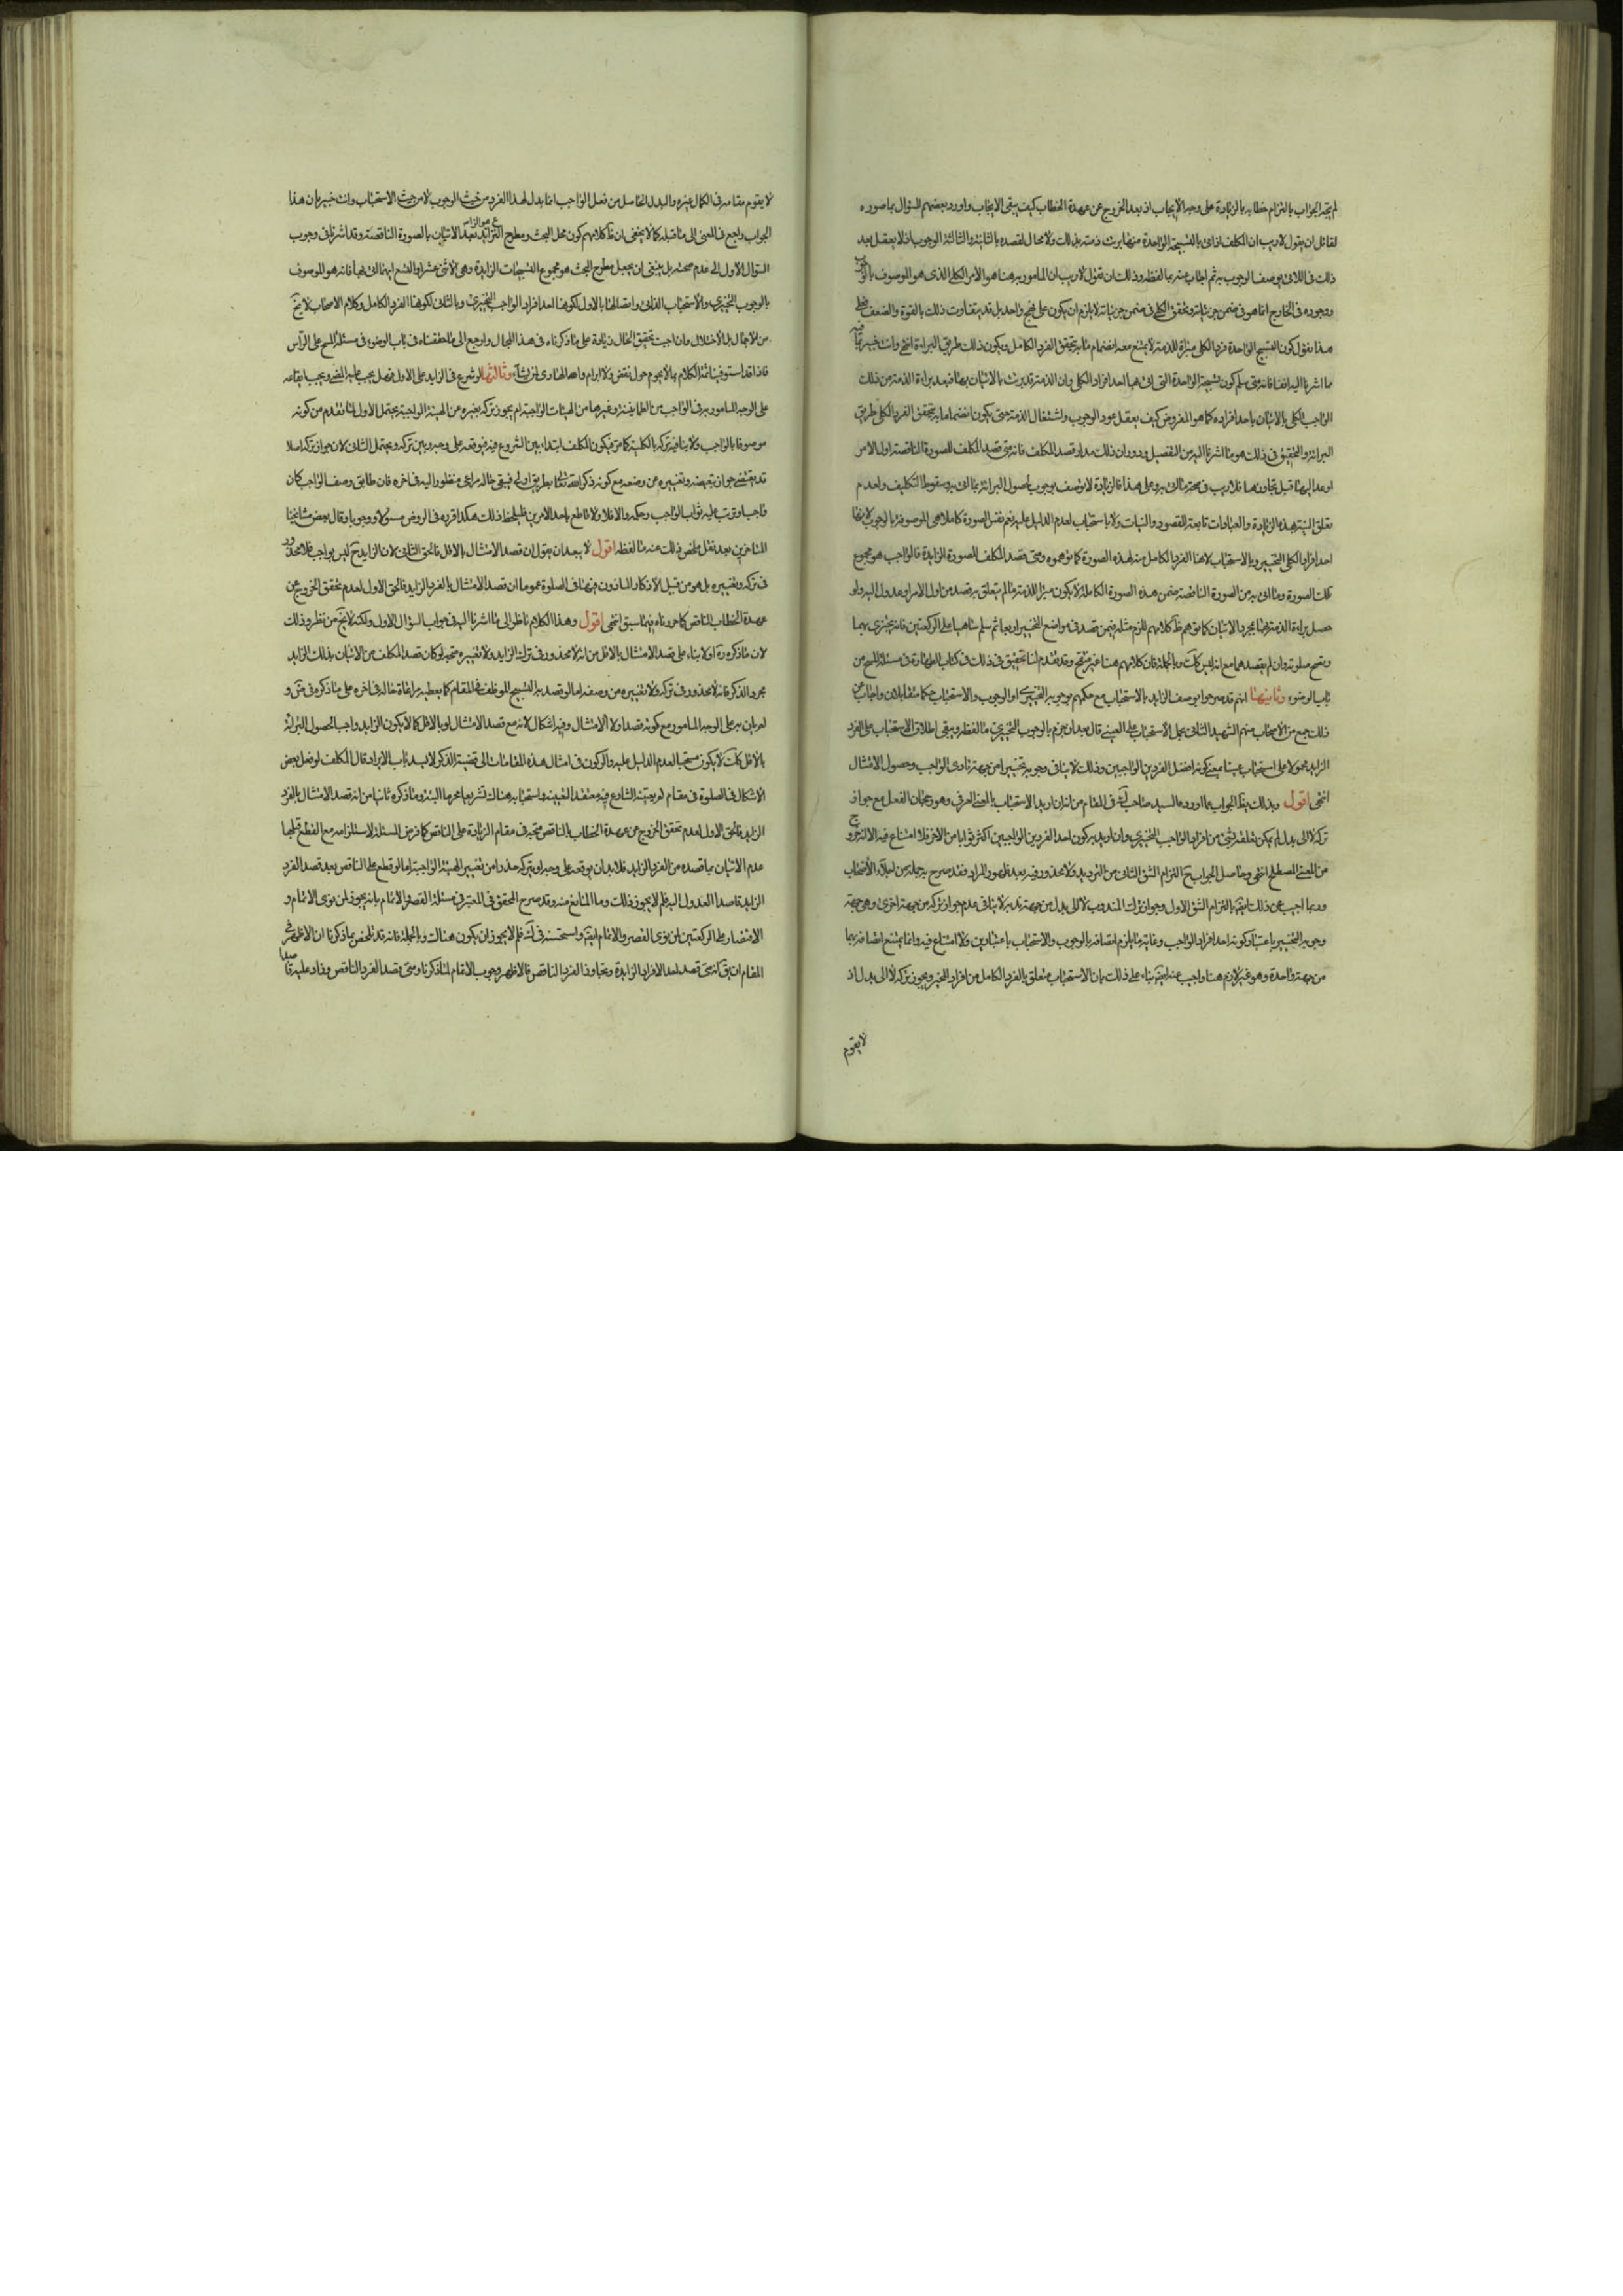 لم يتجه الجواب بالتزام خطابه بالزيادة على وجه الايجاب اذ بعد الخروج عن عهدة الخطاب كيف يبقى الايجاب واورد بعضهم السؤال بما صوره
لقائل ان يقول لا ريب ان المكلف اذا اتى بالتسبيحة الواحدة منها برئت ذمته بذلك ولا محال لقصده بالثانية والثالثة الوجوب اذ لا يعقل بعد
ذلك في اللاتي بوصف الوجوب به ثم اجاب عنه بما لفظه وذلك ان نقول لا ريب ان المامور به هنا هو الامر الكلي الذي هو الموصوف بالوجوب
ووجوده في الخارج انما هو في ضمن جزئياته وتحقق الكلي في ضمن جزئياته لا يلزم ان يكون على نهج واحد بل قد يتفاوت ذلك بالقوة والضعف فعلى
هذا نقول كون التسبيح الواحدة فردا لكلي مبرأة للذمة لا يمتنع معه انضمام ما به تحقق الفرد الكامل ويكون ذلك طريق البراءة انتهى وانت خبير بما فيه
مما اشرنا اليه انفا فانه متى سلم كون تسبيحة الواحدة التي اتى بها احد افراد الكلي وان الذمة قد برئت بالاتيان بها فبعد براءة الذمة من ذلك
الواجب الكلي بالاتيان باحد افراده كما هو المفروض كيف يعقل عود الوجوب واشتغال الذمة حتى يكون انضمام ما به تحقق الفرد الكلي طريق
البرائة والتحقيق في ذلك هو ما اشرنا اليه من التفصيل ودوران ذلك مدار قصد المكلف فانه متى قصد المكلف للصورة الناقصة اول الامر
او عدل اليها قبل تجاوزها فلا ريب في صحة ما اتى به وعلى هذا فالزيادة لا توصف بوجوب لحصول البرائة بما اتى به وسقوط التكليف ولعدم
تعلق النية بهذه الزيادة والعبادات تابعة للقصود والنيات ولا باستحباب لعدم الدليل عليه نعم نفس الصورة كاملة هي الموصوفة بالوجوب لانها
احد افراد الكلي التخييري وبالاستحباب لانها الفرد الكامل منه لهذه الصورة كما توهموه ومتى قصد المكلف الصورة الزايدة فالواجب هو مجموع
تلك الصورة وما اتى به من الصورة الناقصة ضمن هذه الصورة الكاملة لا يكون مبرئا للذمة ما لم يتعلق به قصد من اول الامر او عدول اليه ولو
حصل براءة الذمة هنا بمجرد الاتيان كما يوهم ظ كلامهم للزم مثله فيمن قصد في مواضع التخيير اربعا ثم سلم ساهيا على الركعتين فانه يجتزى بهما
وتصح صلوته وان لم يقصدهما مع انه ليس كك وبالجملة فان كلامهم هنا غير منقح وقد تقدم لنا تحقيق في ذلك في كتاب الطهارة في مسئلة المسح من
باب الوضوء وثانيهما انهم قد صرحوا بوصف الزايد بالاستحباب مع حكمهم بوجوبه التخييري او الوجوب والاستحباب حكما متقابلان واجاب عن
ذلك جمع من الاصحاب منهم الشهيد الثاني بحمل الاستحباب على العيني قال بعد ان جزم بالوجوب التخييري ما لفظه ويبقى اطلاق الاستحباب على الفرد
الزايد محمولا على استحبابه عينا بمعنى كونه افضل الفردين الواجبين وذلك لا ينافي وجوبه تخييرا من جهة تادى الواجب وحصول الامتثال
انتهى اقول وبذلك يظ الجواب عما اورده السيد صاحب ك في المقام من انه ان اريد الاستحباب بالمعنى العرفي وهو رجحان الفعل مع جواز
تركه لا الى بدل لم يمكن تعلقه بشئ من افراد الواجب التخييري وان اريد به كون احد الفردين الواجبين اكثر ثوابا من الاخر فلا امتناع فيه الا انه خروج
من المعنى المصطلح انتهى وحاصل الجواب ح التزام الشق الثاني من الترديد ولا محذور فيه بعد ظهور المراد فقد صرح به جملة من اجلاء الاصحاب
وربما اجيب عن ذلك ايض بالتزام الشق الاول وجواز ترك المندوب لا الى بدل من جهة ندبه لا ينافي عدم جواز تركه من جهة اخرى وهي جهة
وجوبه التخييري باعتبار كونه احد افراد الواجب وغاية ما يلزم اتصافه بالوجوب والاستحباب باعتبارين ولا امتناع فيه وانما يمتنع اتصافه بهما
من جهة واحدة وهو غير لازم هنا واجيب عنه ايض بناء على ذلك بان الاستحباب متعلق بالفرد الكامل من افراد المخير ويجوز تركه لا الى بدل اذ
لا يقوم
لا يقوم مقامه في الكمال غيره والبدل الحاصل من فعل الواجب انما بدل لهذا الفرد من حيث الوجوب لا من حيث الاستحباب وانت خبير بان هذا
الجواب راجع في المعنى الى ما قبله كما لا يخفى ان ظ كلامهم كون محل البحث ومطرح النزاع هو الزايد بعد الاتيان بالصورة الناقصة وقد اشرنا في وجوب
السؤال الاول الى عدم صحته بل ينبغي ان يجعل مطرح البحث هو مجموع التسبيحات الزايدة وهي الاثنى عشر او التسع ايهما اتى بها فانه هو الموصوف
بالوجوب التخييري والاستحباب الذاتي واتصالها بالاول لكونها احد افراد الواجب التخييري وبالثاني لكونها الفرد الكامل وكلام الاصحاب لا يخ
من الاجمال بل الاختلال وان احببت تحقيق الحال زيادة على ما ذكرناه في هذا المجال وارجع الى ما حققناه في باب الوضوء في مسئلة المسح على الراس
فانا قد استوفينا ثمة الكلام بما لا يحوم حوله نقض ولا ابرام والله الهادي لمن يشاء وثالثها لو شرع في الزايد على الاول فهل يجب عليه المضي ويجب ايقاعه
على الوجه المامور به في الواجب من الطمانينة وغيرها من الهيئات الواجبة ام يجوز تركه وتغييره عن الهيئة الواجبة يحتمل الاول لما تقدم من كونه
موصوفا بالواجب ولا ينافيه تركه بالكلية كما مر فيكون المكلف ابتداء بين الشروع فيه فيوقعه على وجهه وبين تركه ويحتمل الثاني لان جواز تركه اصلا
قد يقتضي جواز تبعيضه وتغييره عن وضعه مع كونه ذكر الله تعالى بطريق اولى فيبقى حاله مراعى منظورا اليه في اخره فان طابق وصف الواجب كان
واجبا وترتب عليه ثواب الواجب وحكمه والا فلا ولا قاطع باحد الامرين فليلحظ ذلك هكذا قربه في الروض مستوى ووجوبا وقال بعض مشايخنا
المتاخرين بعد نقل ملخص ذلك عنه ما لفظه اقول لا يبعد ان يقول ان قصد الامتثال بالاقل فالحق الثاني لان الزايد ح ليس بواجب فلا محذور
في تركه وتغييره بل هو من قبيل الاذكار الماذون فيها في الصلوة عموما ان قصد الامتثال بالفرد الزايد فالحق الاول لعدم تحقق الخروج عن
عهدة الخطاب بالناقص كما حررناه فيما سبق انتهى اقول وهذا الكلام ناظر الى ما اشرنا اليه في جواب السؤال الاول ولكنه لا يخ من نظر وذلك
لان ما ذكره اولا بناء على قصد الامتثال بالاقل من انه لا محذور في ترك الزايد ولا تغييره متجه لو كان قصد المكلف من الاتيان بذلك الزايد
مجرد الذكر فانه لا محذور في تركه ولا تغييره من وصفه اما لو قصد به التسبيح الموظف في المقام كما يعطيه مراعاة حاله في اخره على ما ذكره في متن و
لم يات به على الوجه المامور مع كونه قصد اولا الامتثال وفيه اشكال لانه مع قصد الامتثال اولا بالاقل كما لا يكون الزايد واجبا لحصول البرائة
بالاقل كك لا يكون مستحبا لعدم الدليل عليه والركون في امثال هذه المقامات الى قضية الذكر لا يسد باب الايراد قال المكلف لو فعل بعض
الاشكال في الصلوة في مقام لم يعينه الشارع فيه معتقدا لتعيينه واستحبابه هناك تشريعا محرما البتة وما ذكره ثانيا من انه قصد الامتثال بالفرد
الزايد فالحق الاول لعدم تحقق الخروج عن عهدة الخطاب بالناقص متجه في مقام الزيادة على الناقص كما فرض المسئلة لاستلزامه مع القطع قبلها
عدم الاتيان بما قصده من الفرد الزايد فلا بد ان يوقعه على وجهه او يتركه حذرا من تغيير الهيئة الواجبة اما لو قطع على الناقص بعد قصد الفرد
الزايد قاصدا العدول اليه فلم لا يجوز ذلك وما المانع منه وقد صرح المحقق في المعتبر في مسئلة القصر والاتمام بانه يجوز لمن نوى الاتمام و
الاقتصار على الركعتين لمن نوى القصر والاتمام ايض واستحسنه في ك فلم لا يجوز ان يكون هناك وبالجملة فانه قد تلخص بما ذكرنا ان الاظهر في
المقام ان يق انه متى قصد احد الافراد الزايدة وتجاوز الفرد الناقص فالاظهر وجوب الاتمام لما ذكرنا ومتى قصد الفرد الناقص وزاد عليه قاصدا